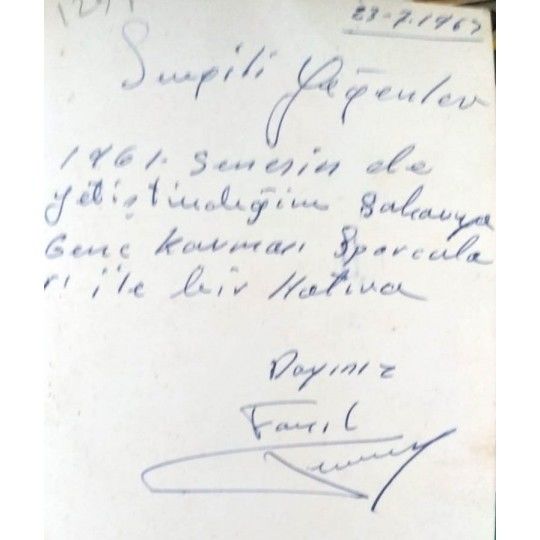 23-7.1967
Sevgili Yeğenler
1961. Senesin de
yetiştirdiğim Sakarya
Genç Karması Sporcula
rı ile bir Hatıra
Dayınız